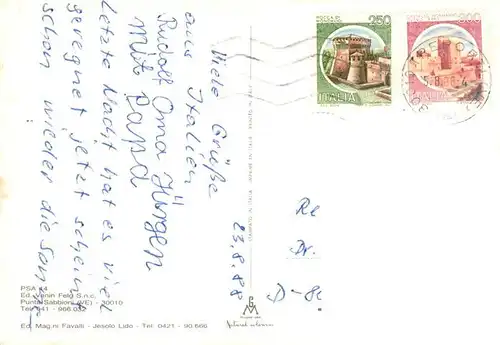 Viele Grüße
aus Italien
Rudolf Oma Jürgen
Mutti Papa
Letzte Nacht hat es viel
geregnet jetzt scheint
schon wieder die Sonne
23.8.88
Re
Dr.
D-8
250
ITALIA
ITALIA
PSA 44
Ed. Venin Felo S.n.c.
Punta Sabbioni (VE) - 30010
Tel. 041 - 966.032
Ed. Magni Favalli - Jesolo Lido - Tel. 0421 - 90.666